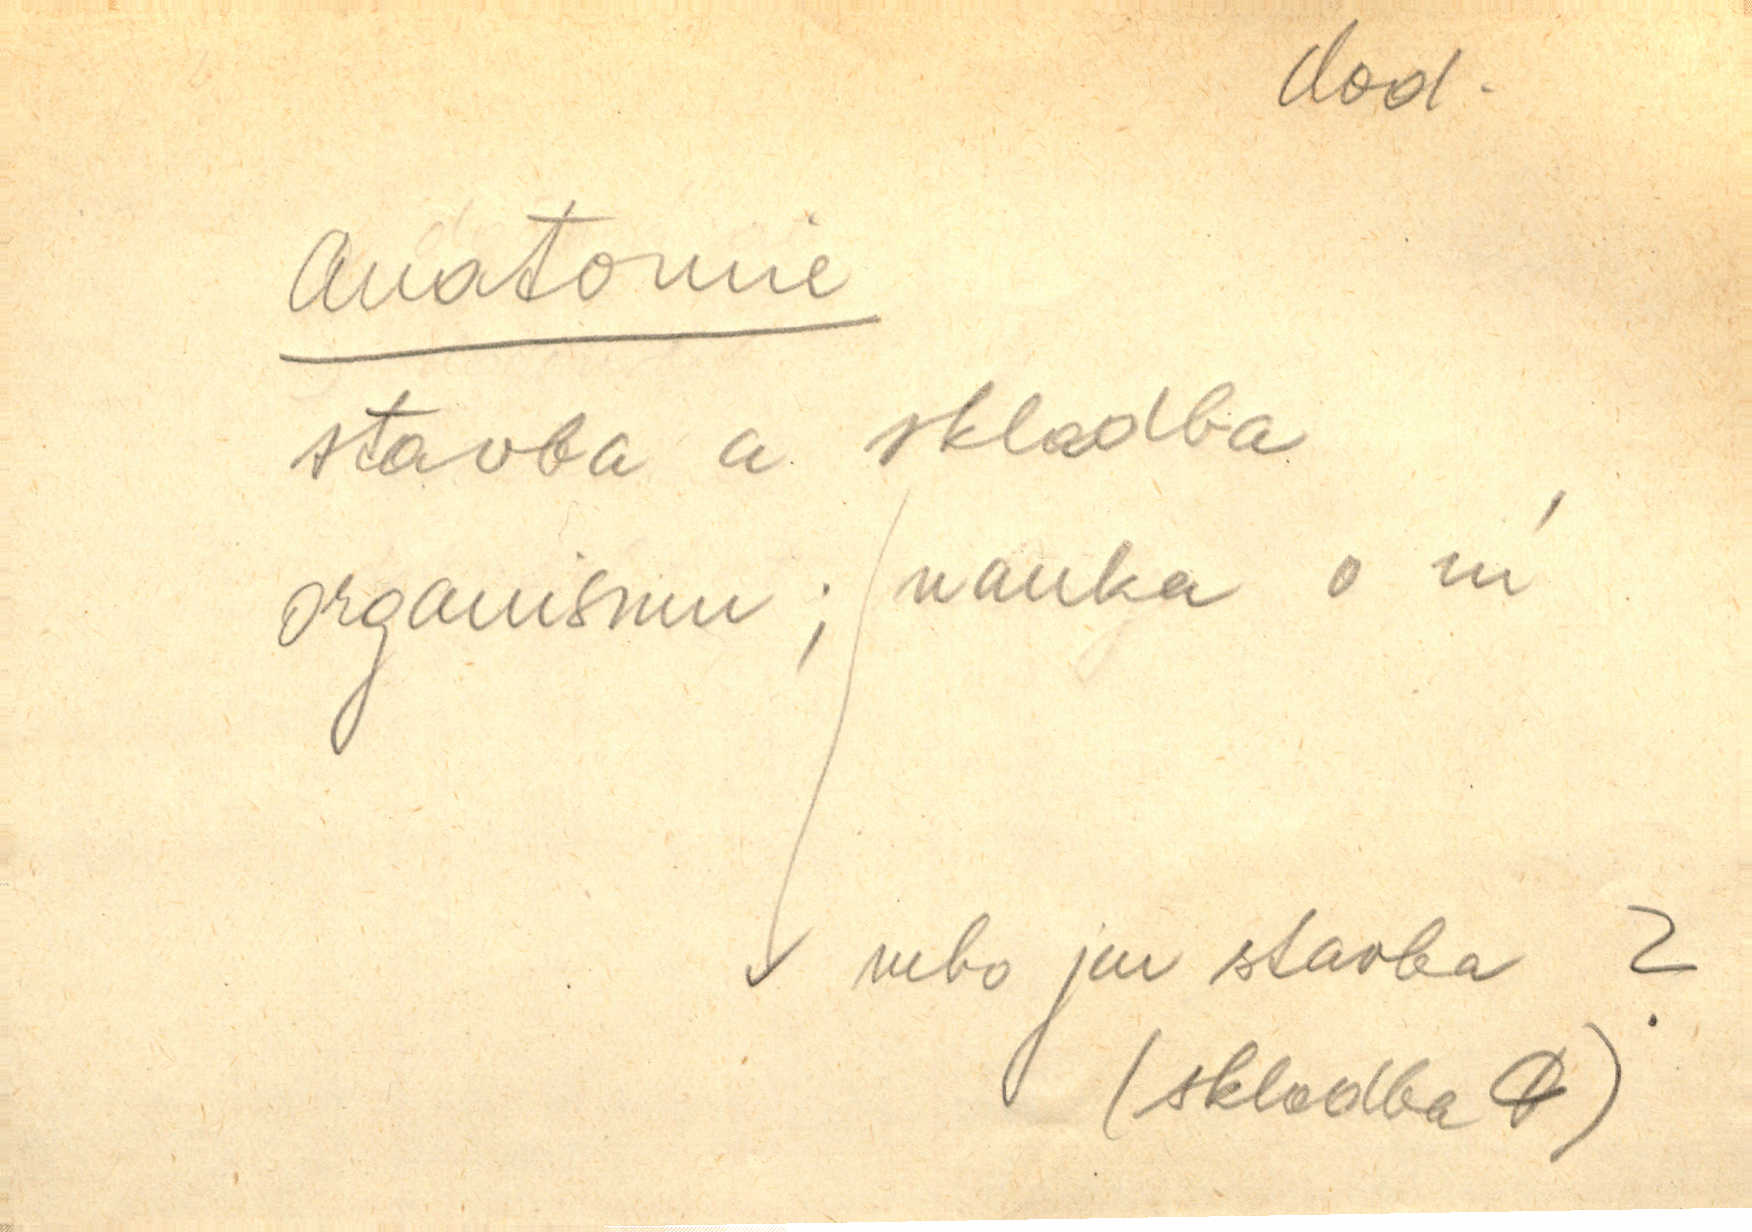 dod.
anatomie
stavba a skladba
organismu; nauka o ní
nebo jen stavba ?
(skladba )